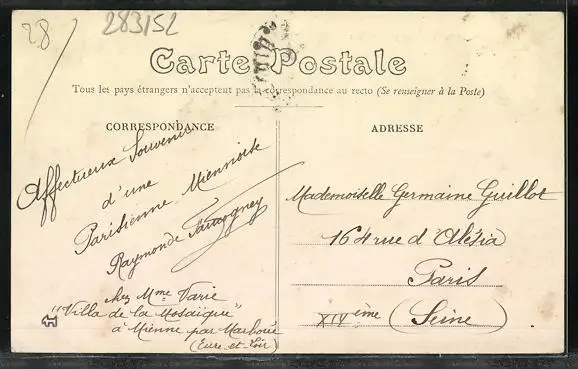 28
283152
Carte Postale
Tous les pays étrangers n'acceptent pas la correspondance au recto (Se renseigner à la Poste)
CORRESPONDANCE
Affectueux Souvenir
d'une
Parisienne Miennoise
Raymonde
chez Mme Varie
"Villa de la Mosaïque"
à Mienne par Marboué
(Eure-et-Loir)
ADRESSE
Mademoiselle Germaine Guillot
164 rue d'Alésia
Paris
XIVième (Seine)